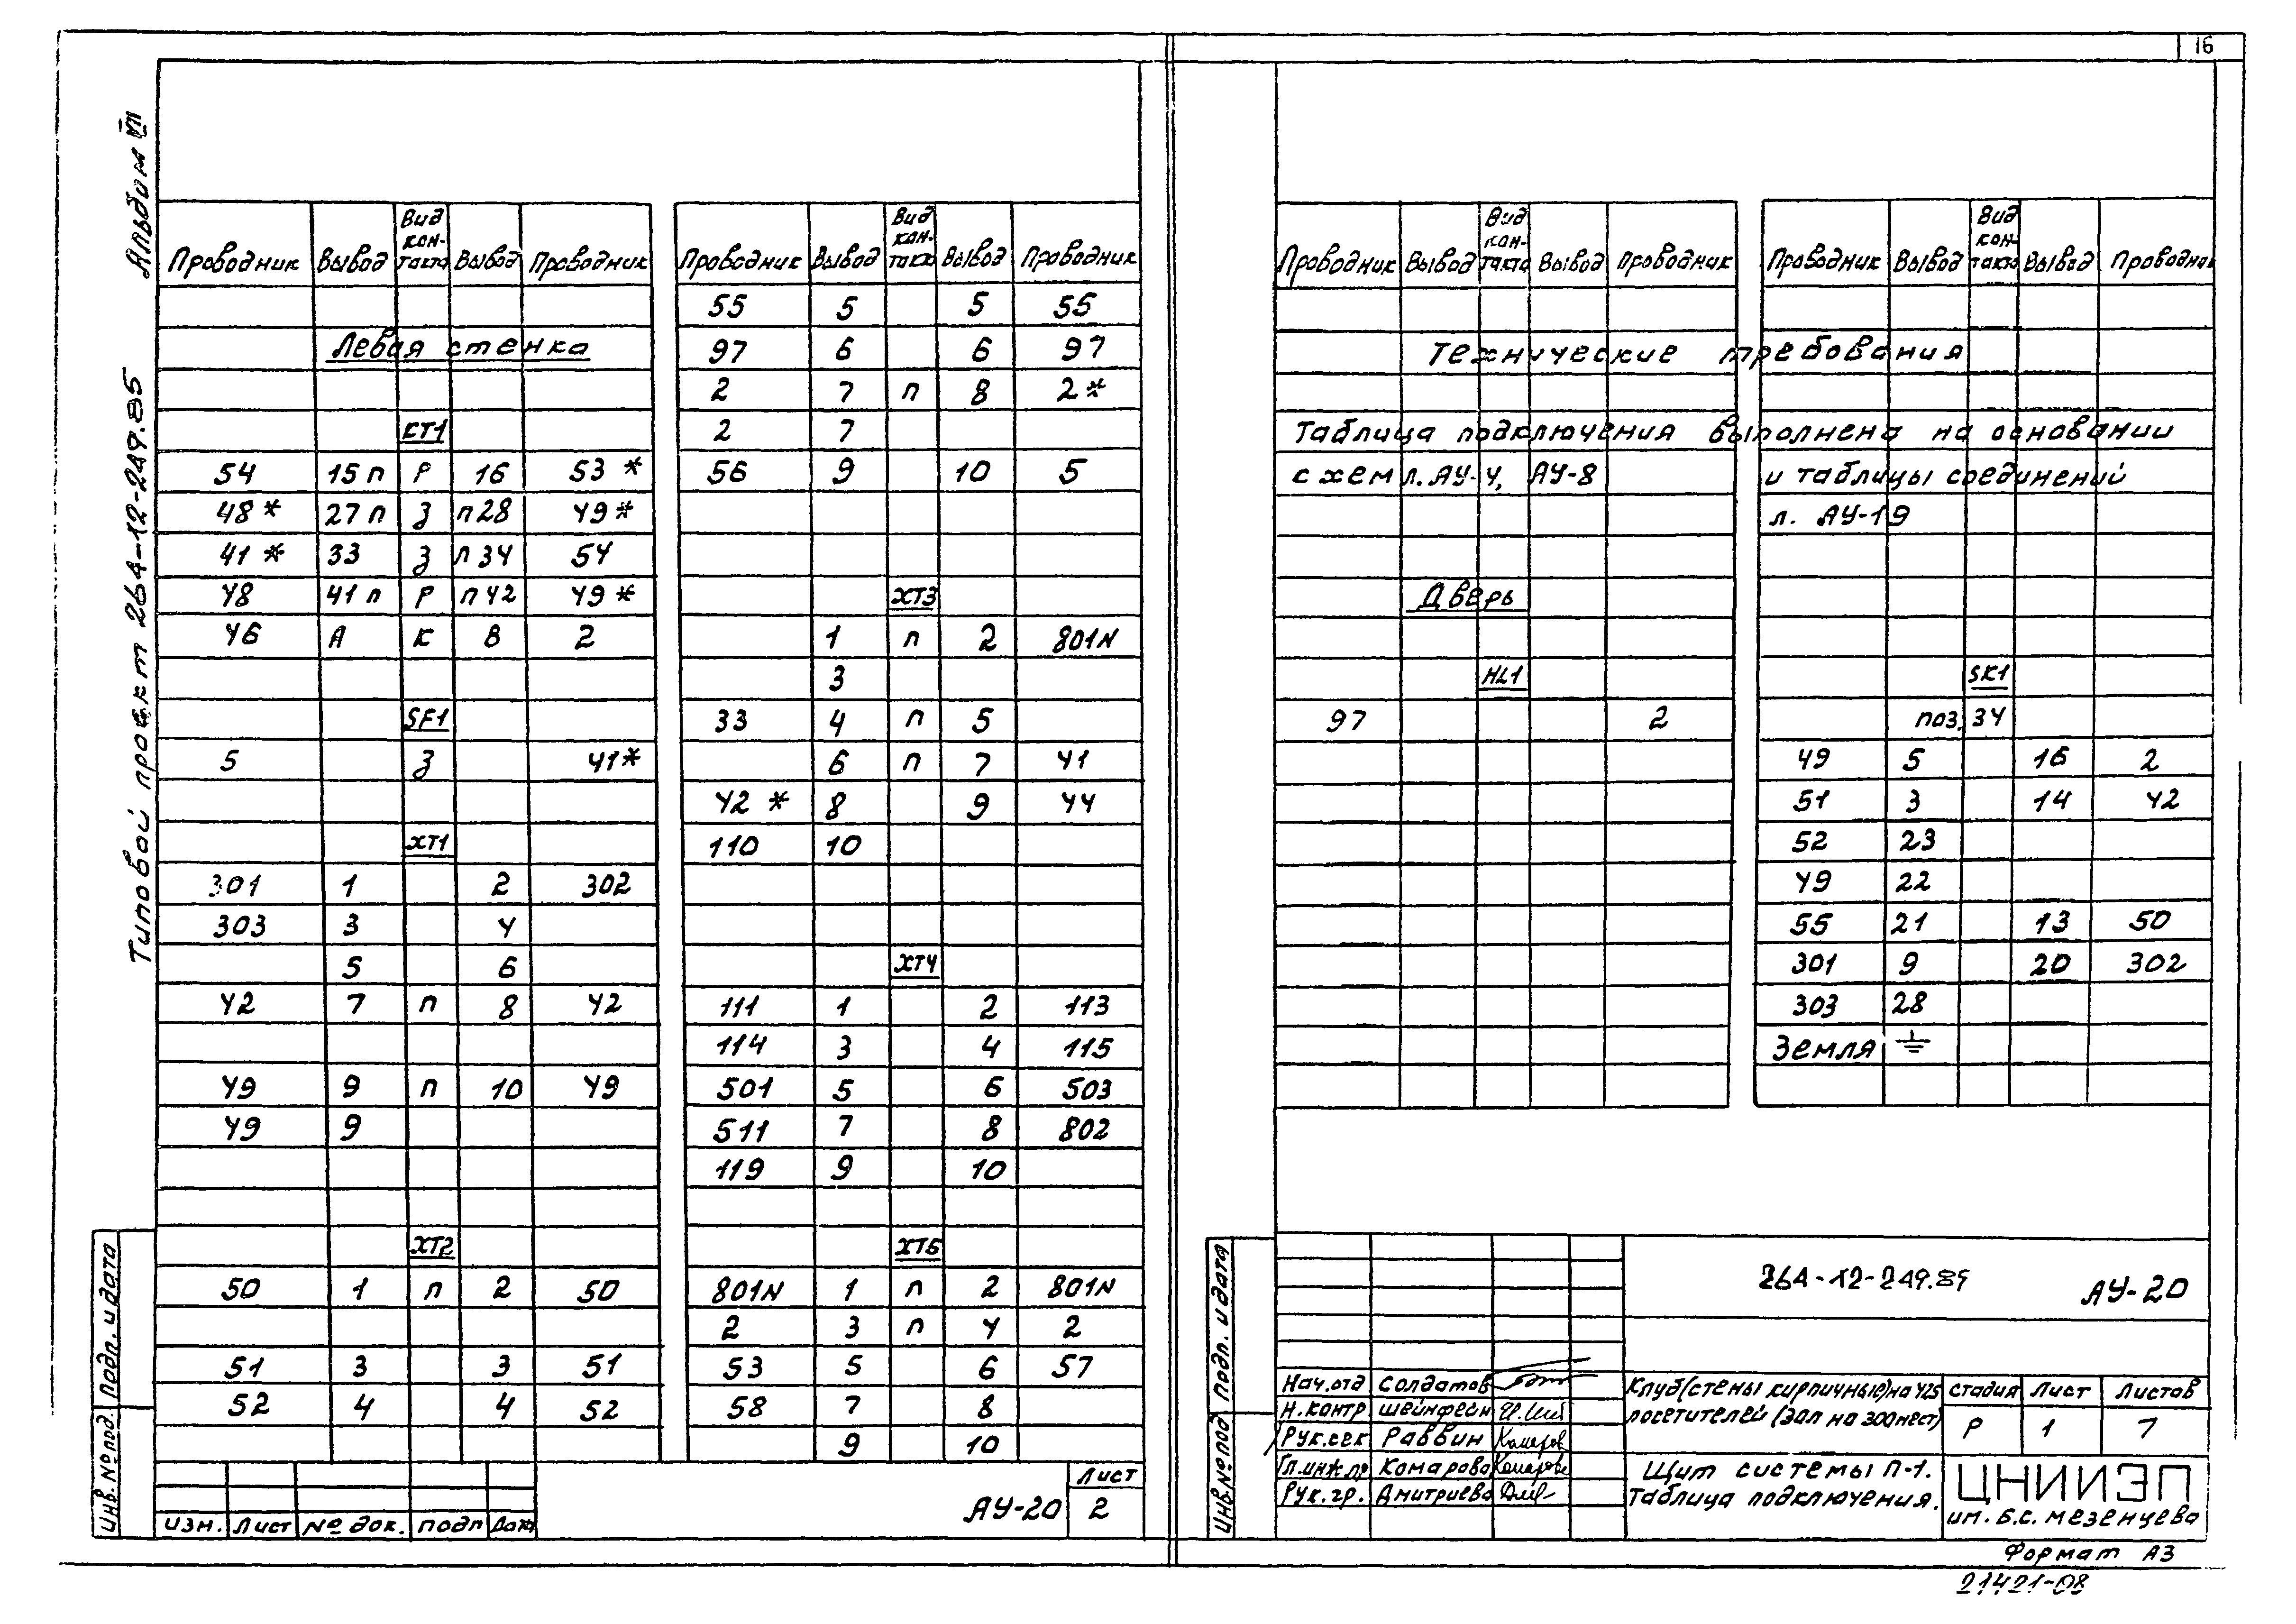 16
Альбом VII
Типовой проект 264-12-249.85
Проводник Вывод Вид кон-такта Вывод Проводник
Левая стенка
КТ1
54 15 п Р 16 53 *
48 * 27 п З п 28 49 *
41 * 33 З п 34 54
48 41 п Р п 42 49 *
46 А К В 2
SF1
5 З 41 *
ХТ1
301 1 2 302
303 3 4
5 6
42 7 п 8 42
49 9 п 10 49
49 9
ХТ2
50 1 п 2 50
51 3 3 51
52 4 4 52
Проводник Вывод Вид кон-такта Вывод Проводник
55 5 5 55
97 6 6 97
2 7 п 8 2 *
2 7
56 9 10 5
ХТ3
1 п 2 801N
3
33 4 п 5
6 п 7 41
42 * 8 9 44
110 10
ХТ4
111 1 2 113
114 3 4 115
501 5 6 503
511 7 8 802
119 9 10
ХТ5
801N 1 п 2 801N
2 3 п 4 2
53 5 6 57
58 7 8
9 10
Инв. № под. Подп. и дата
Изм. Лист № док. подп Дата
АУ-20
Лист
2
Проводник Вывод Вид кон-такта Вывод Проводник
Проводник Вывод Вид кон-такта Вывод Проводник
Технические требования
Таблица подключения выполнена на основании
схем л. АУ-4, АУ-8 и таблицы соединений
л. АУ-19
Дверь
HL1
97 2
SK1
поз. 34
49 5 16 2
51 3 14 42
52 23
49 22
55 21 13 50
301 9 20 302
303 28
Земля ⏚
Инв. № под Подп. и дата
264-12-249.85 АУ-20
Нач.отд Солдатов
Н.контр Шейнфейн
Рук.сек Раввин
Гл.инж.пр Комарова
Рук.гр. Дмитриева
Клуб (стены кирпичные) на 425
посетителей (зал на 300 мест)
Стадия Лист Листов
Р 1 7
Щит системы П-1.
Таблица подключения.
ЦНИИЭП
им. Б.С. Мезенцева
Формат А3
21421-08